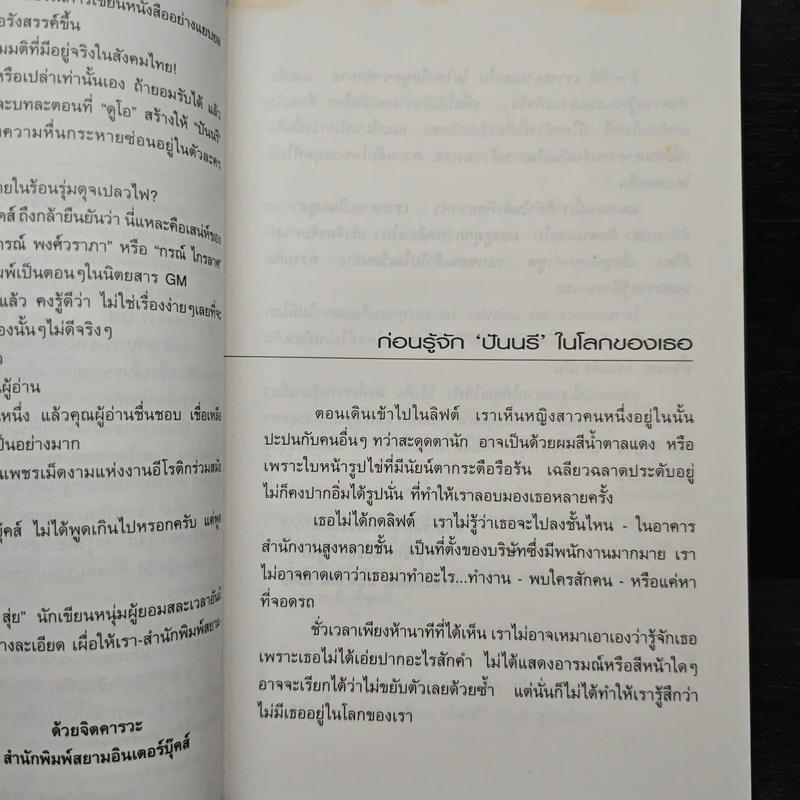 การเขียนหนังสืออย่างแยบยล
อรังสรรค์ขึ้น
มมติที่มีอยู่จริงในสังคมไทย!
หรือเปล่าเท่านั้นเอง ถ้ายอมรับได้ แล้ว
จะบทละตอนที่ “ดูโอ” สร้างให้ “ปันนรี”
งความหื่นกระหายซ่อนอยู่ในตัวละคร
ายในร้อนรุ่มดุจเปลวไฟ?
คส์ ถึงกล้ายืนยันว่า นี่แหละคือเสน่ห์ของ
กรณ์ พงศ์วราภา” หรือ “กรณ์ ไกรลาศ”
มพ์เป็นตอนๆในนิตยสาร GM
แล้ว คงรู้ดีว่า ไม่ใช่เรื่องง่ายๆเลยที่จะ
องนั้นๆไม่ดีจริงๆ
ผู้อ่าน
หนึ่ง แล้วคุณผู้อ่านชื่นชอบ เชื่อเหลือ
ป็นอย่างมาก
นเพชรเม็ดงามแห่งงานอีโรติกร่วมสมัย
บุ๊คส์ ไม่ได้พูดเกินไปหรอกครับ แต่พูด
สุ่ย” นักเขียนหนุ่มผู้ยอมสละเวลาอัน
างละเอียด เผื่อให้เรา-สำนักพิมพ์สยาม
ด้วยจิตคารวะ
สำนักพิมพ์สยามอินเตอร์บุ๊คส์
ก่อนรู้จัก ‘ปันนรี’ ในโลกของเธอ
ตอนเดินเข้าไปในลิฟต์ เราเห็นหญิงสาวคนหนึ่งอยู่ในนั้น
ปะปนกับคนอื่นๆ ทว่าสะดุดตานัก อาจเป็นด้วยผมสีน้ำตาลแดง หรือ
เพราะใบหน้ารูปไข่ที่มีนัยน์ตากระตือรือร้น เฉลียวฉลาดประดับอยู่
ไม่ก็คงปากอิ่มได้รูปนั่น ที่ทำให้เราลอบมองเธอหลายครั้ง
เธอไม่ได้กดลิฟต์ เราไม่รู้ว่าเธอจะไปลงชั้นไหน - ในอาคาร
สำนักงานสูงหลายชั้น เป็นที่ตั้งของบริษัทซึ่งมีพนักงานมากมาย เรา
ไม่อาจคาดเดาว่าเธอมาทำอะไร...ทำงาน - พบใครสักคน - หรือแค่หา
ที่จอดรถ
ชั่วเวลาเพียงห้านาทีที่ได้เห็น เราไม่อาจเหมาเอาเองว่ารู้จักเธอ
เพราะเธอไม่ได้เอ่ยปากอะไรสักคำ ไม่ได้แสดงอารมณ์หรือสีหน้าใดๆ
อาจจะเรียกได้ว่าไม่ขยับตัวเลยด้วยซ้ำ แต่นั่นก็ไม่ได้ทำให้เรารู้สึกว่า
ไม่มีเธออยู่ในโลกของเรา